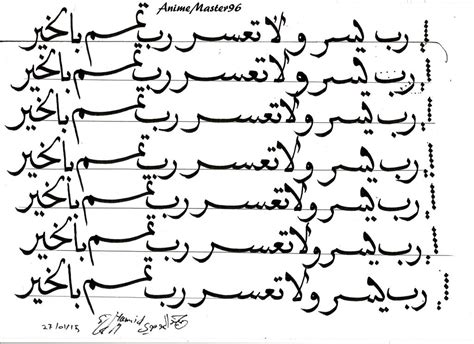 AnimeMaster96
رب يسر ولا تعسر رب تمم بالخير
رب يسر ولا تعسر رب تمم بالخير
رب يسر ولا تعسر رب تمم بالخير
رب يسر ولا تعسر رب تمم بالخير
رب يسر ولا تعسر رب تمم بالخير
رب يسر ولا تعسر رب تمم بالخير
رب يسر ولا تعسر رب تمم بالخير
27/01/15 Hamid